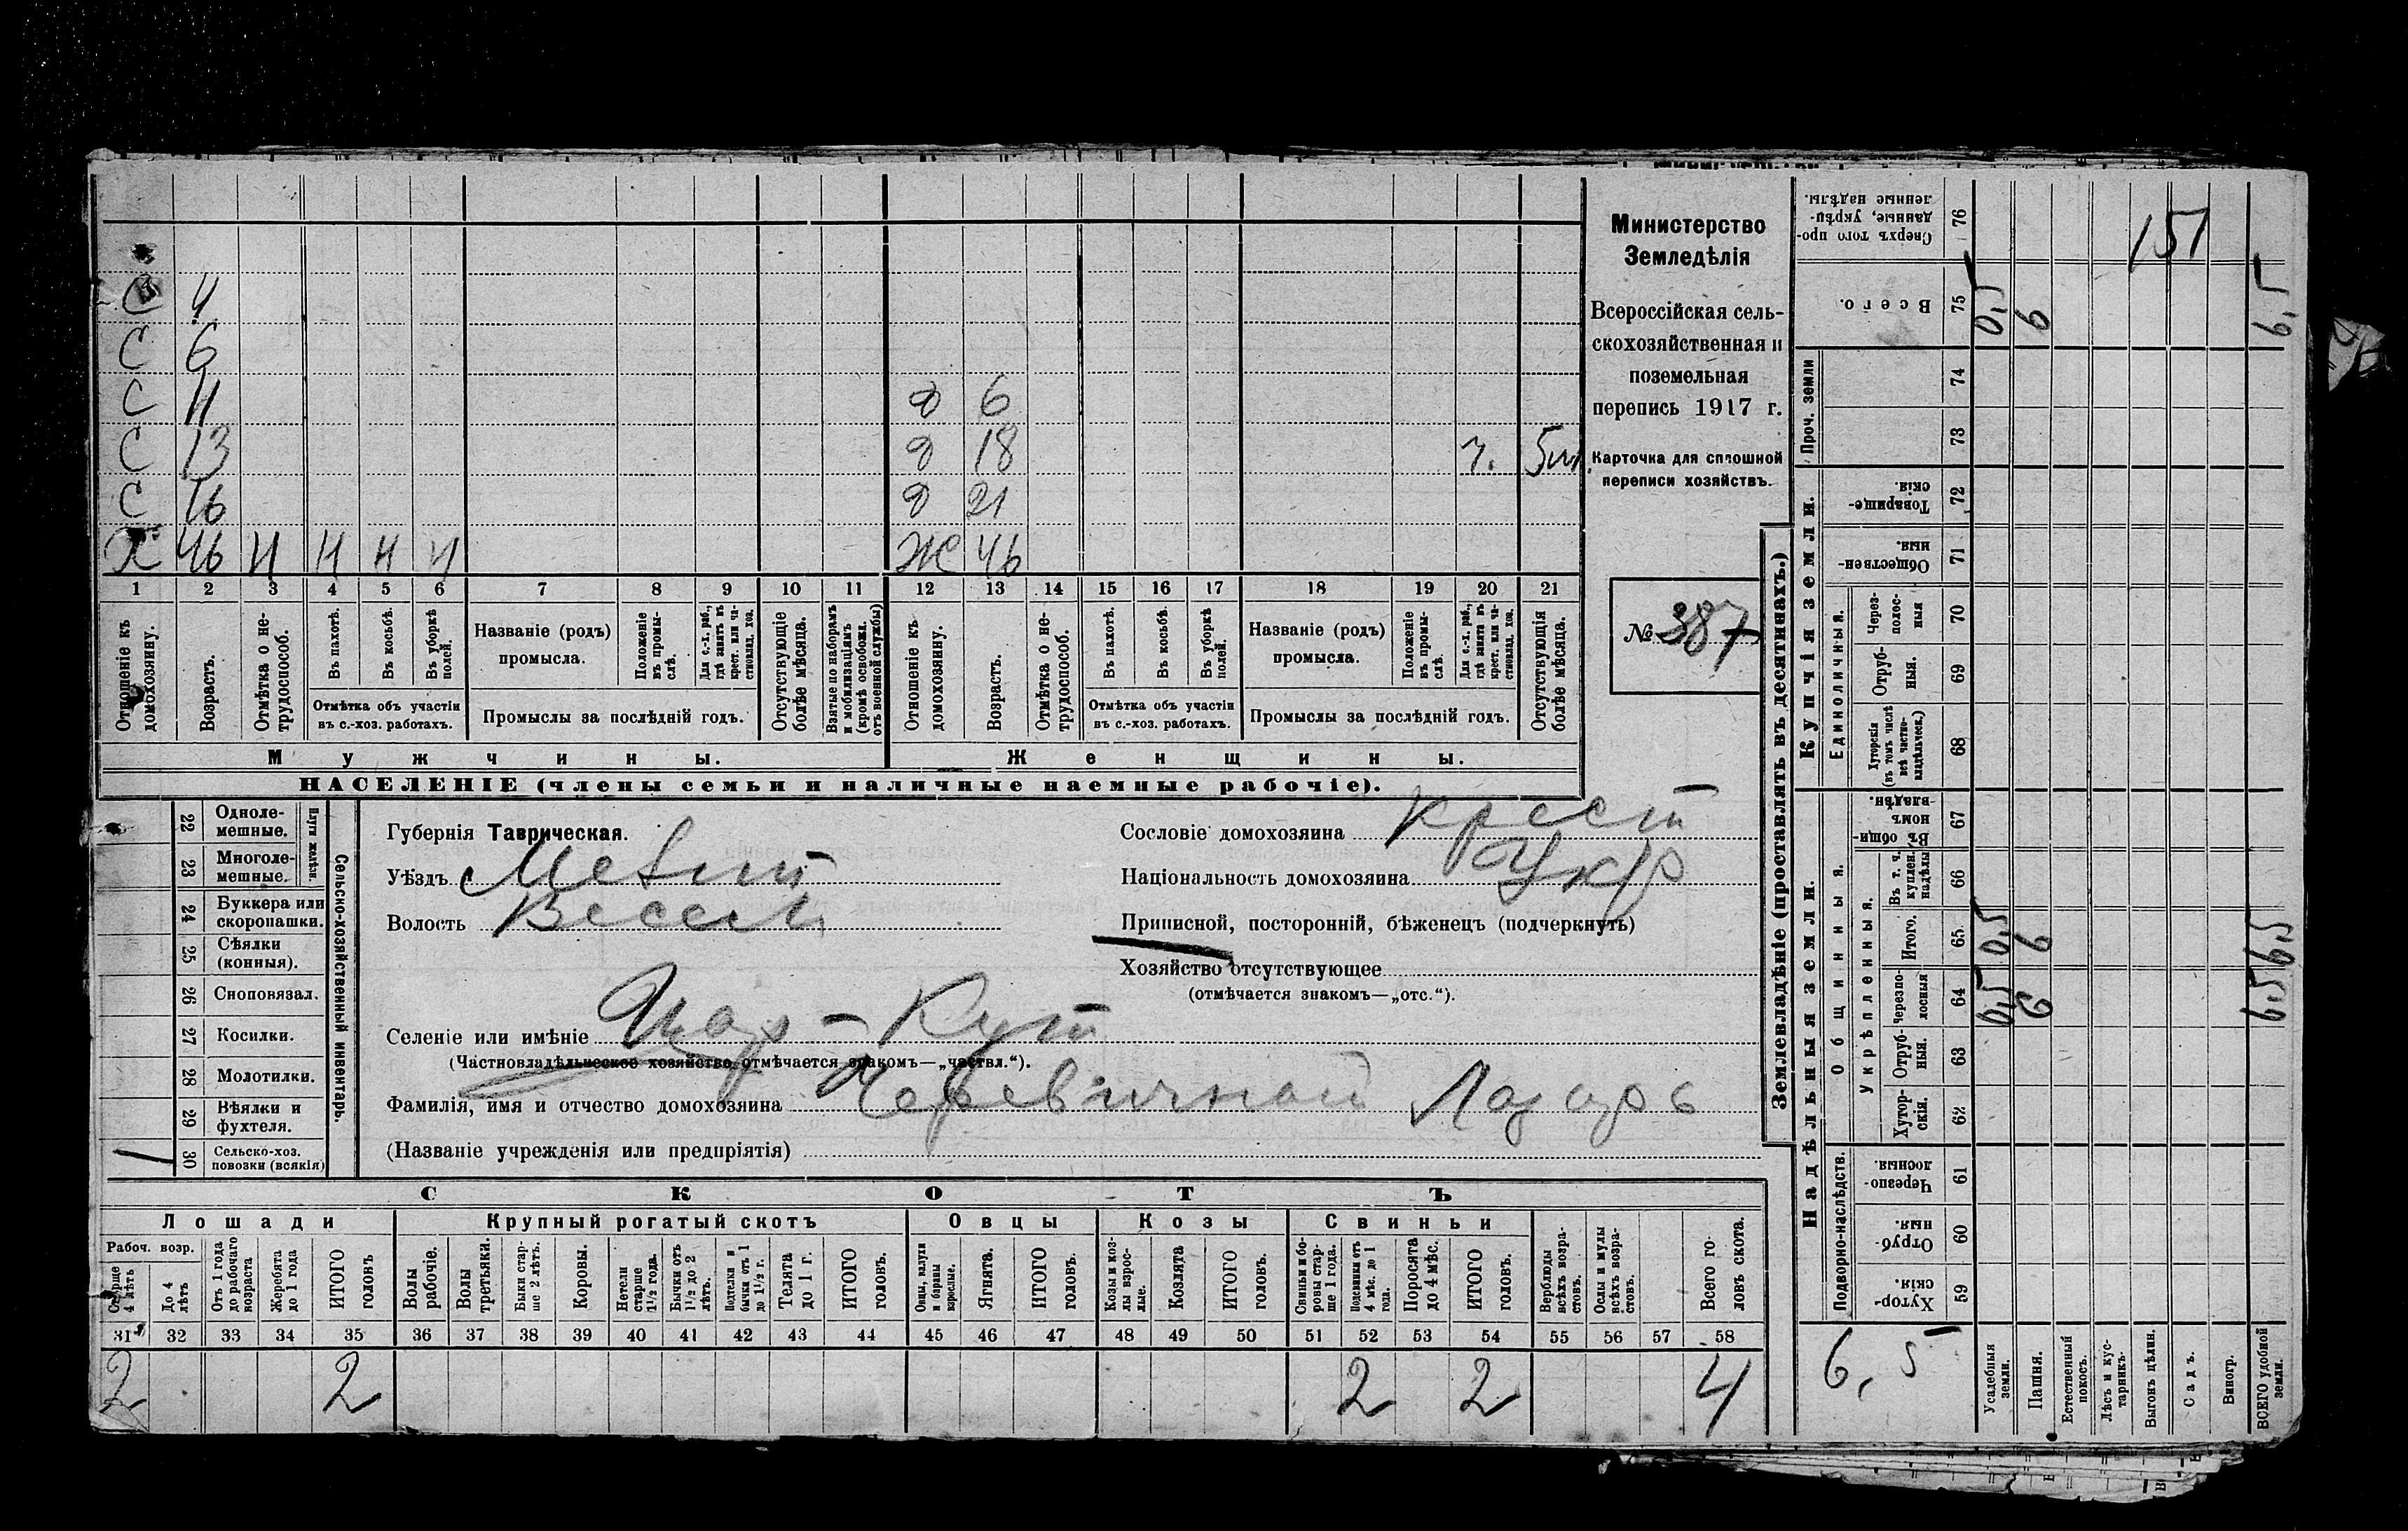 С 4
С 6
С 11 д 6
С 13 д 18 г. 5 м.
С 16 д 21
Х 46 Н Н Н Н Ж 46
1 2 3 4 5 6 7 8 9 10 11 12 13 14 15 16 17 18 19 20 21
Отношеніе къ домохозяину.
Возрастъ.
Отмѣтка о не-
трудоспособ.
Въ пахотѣ.
Въ косьбѣ.
Въ уборкѣ полей.
Отмѣтка объ участіи
въ с.-хоз. работахъ.
Названіе (родъ)
промысла.
Положеніе въ промы-
слѣ.
Для с.-х. раб., гдѣ занятъ въ крест. или ча-
стновлад. хоз.
Промыслы за послѣдній годъ.
Отсутствующіе болѣе мѣсяца.
Взятые по наборамъ и мобилизаціямъ (кромѣ освобожд. отъ военной службы)
Отношеніе къ домохозяину.
Возрастъ.
Отмѣтка о не-
трудоспособ.
Въ пахотѣ.
Въ косьбѣ.
Въ уборкѣ полей.
Отмѣтка объ участіи
въ с.-хоз. работахъ.
Названіе (родъ)
промысла.
Положеніе въ промы-
слѣ.
Для с.-х. раб., гдѣ занята въ крест. или ча-
стновлад. хоз.
Промыслы за послѣдній годъ.
Отсутствующія болѣе мѣсяца.
Мужчины. Женщины.
НАСЕЛЕНІЕ (члены семьи и наличные наемные рабочіе).
Министерство
Земледѣлія
Всероссійская сель-
скохозяйственная и
поземельная
перепись 1917 г.
Карточка для сплошной
переписи хозяйствъ.
№ 387
22 Одноле-
мешные.
23 Многоле-
мешные.
Плуги желѣзн.
24 Буккера или
скоропашки.
25 Сѣялки
(конныя).
26 Сноповязал.
27 Косилки.
28 Молотилки.
29 Вѣялки и
фухтеля.
30 Сельско-хоз.
повозки (всякія)
Сельско-хозяйственный инвентарь.
Губернія Таврическая.
Уѣздъ Мелит
Волость Весел
Сословіе домохозяина крест
Національность домохозяина Укр
Приписной, посторонній, бѣженецъ (подчеркнуть)
Хозяйство отсутствующее
(отмѣчается знакомъ—„отс.“).
Селеніе или имѣніе
(Частновладѣльческое хозяйство отмѣчается знакомъ—„частвл.“).
Фамилія, имя и отчество домохозяина Черевичной Лазарь
(Названіе учрежденія или предпріятія)
СКОТЪ
Лошади Крупный рогатый скотъ Овцы Козы Свиньи
Рабоч. возр.
Старше 4 лѣтъ
До 4 лѣтъ
Отъ 1 года до рабочаго возраста
Жеребята до 1 года
ИТОГО головъ
Волы рабочіе.
Волы третьяки.
Быки стар-
ше 2 лѣтъ.
Коровы.
Нетели старше 1½ года.
Бычки отъ 1½ до 2 лѣтъ.
Подтелки и бычки отъ 1 до 1½ г.
Телята до 1 г.
ИТОГО головъ.
Овцы, валухи и бараны взрослые.
Ягнята.
ИТОГО головъ.
Козы и коз-
лы взрос-
лые.
Козлята
ИТОГО головъ.
Свиньи и бо-
ровы стар-
ше 1 года.
Подсвинки отъ 4 мѣс. до 1 года.
Поросята до 4 мѣс.
ИТОГО головъ.
Верблюды всѣхъ возра-
стовъ.
Ослы и мулы всѣхъ возра-
стовъ.
Всего го-
ловъ скота.
31 32 33 34 35 36 37 38 39 40 41 42 43 44 45 46 47 48 49 50 51 52 53 54 55 56 57 58
2 2 2 2 4
Землевладѣніе (проставлять въ десятинахъ.)
Надѣльныя земли. Купчія земли. Проч. земли
Подворно-наслѣдств.
Общинныя.
Укрѣпленныя.
Единоличныя.
Сверхъ того про-
данные, укрѣп-
ленные надѣлы. 76
151
Всего. 75 0,5 6 6,5
74
73
Товарище-
скія. 72
Обществен-
ныя. 71
Черезполос-
ныя 70
Отруб-
ныя. 69
Хуторскія (въ томъ числѣ всѣ частно-
владѣльческ.) 68
Въ общи-
номъ владѣн. 67
Въ т. ч. куплен. надѣлы 66
Итого. 65 0,5 6 6,5
Черезпо-
лосныя 64 0,5 6 6,5
Отруб-
ныя. 63
Хутор-
скія. 62
Черезпо-
лосныя. 61
Отруб-
ныя. 60
Хутор-
скія. 59
6,5
Усадебныя земли.
Пашня.
Естественный покосъ.
Лѣсъ и кус-
тарникъ.
Выгонъ цѣлин.
Садъ.
Виногр.
ВСЕГО удобной земли.